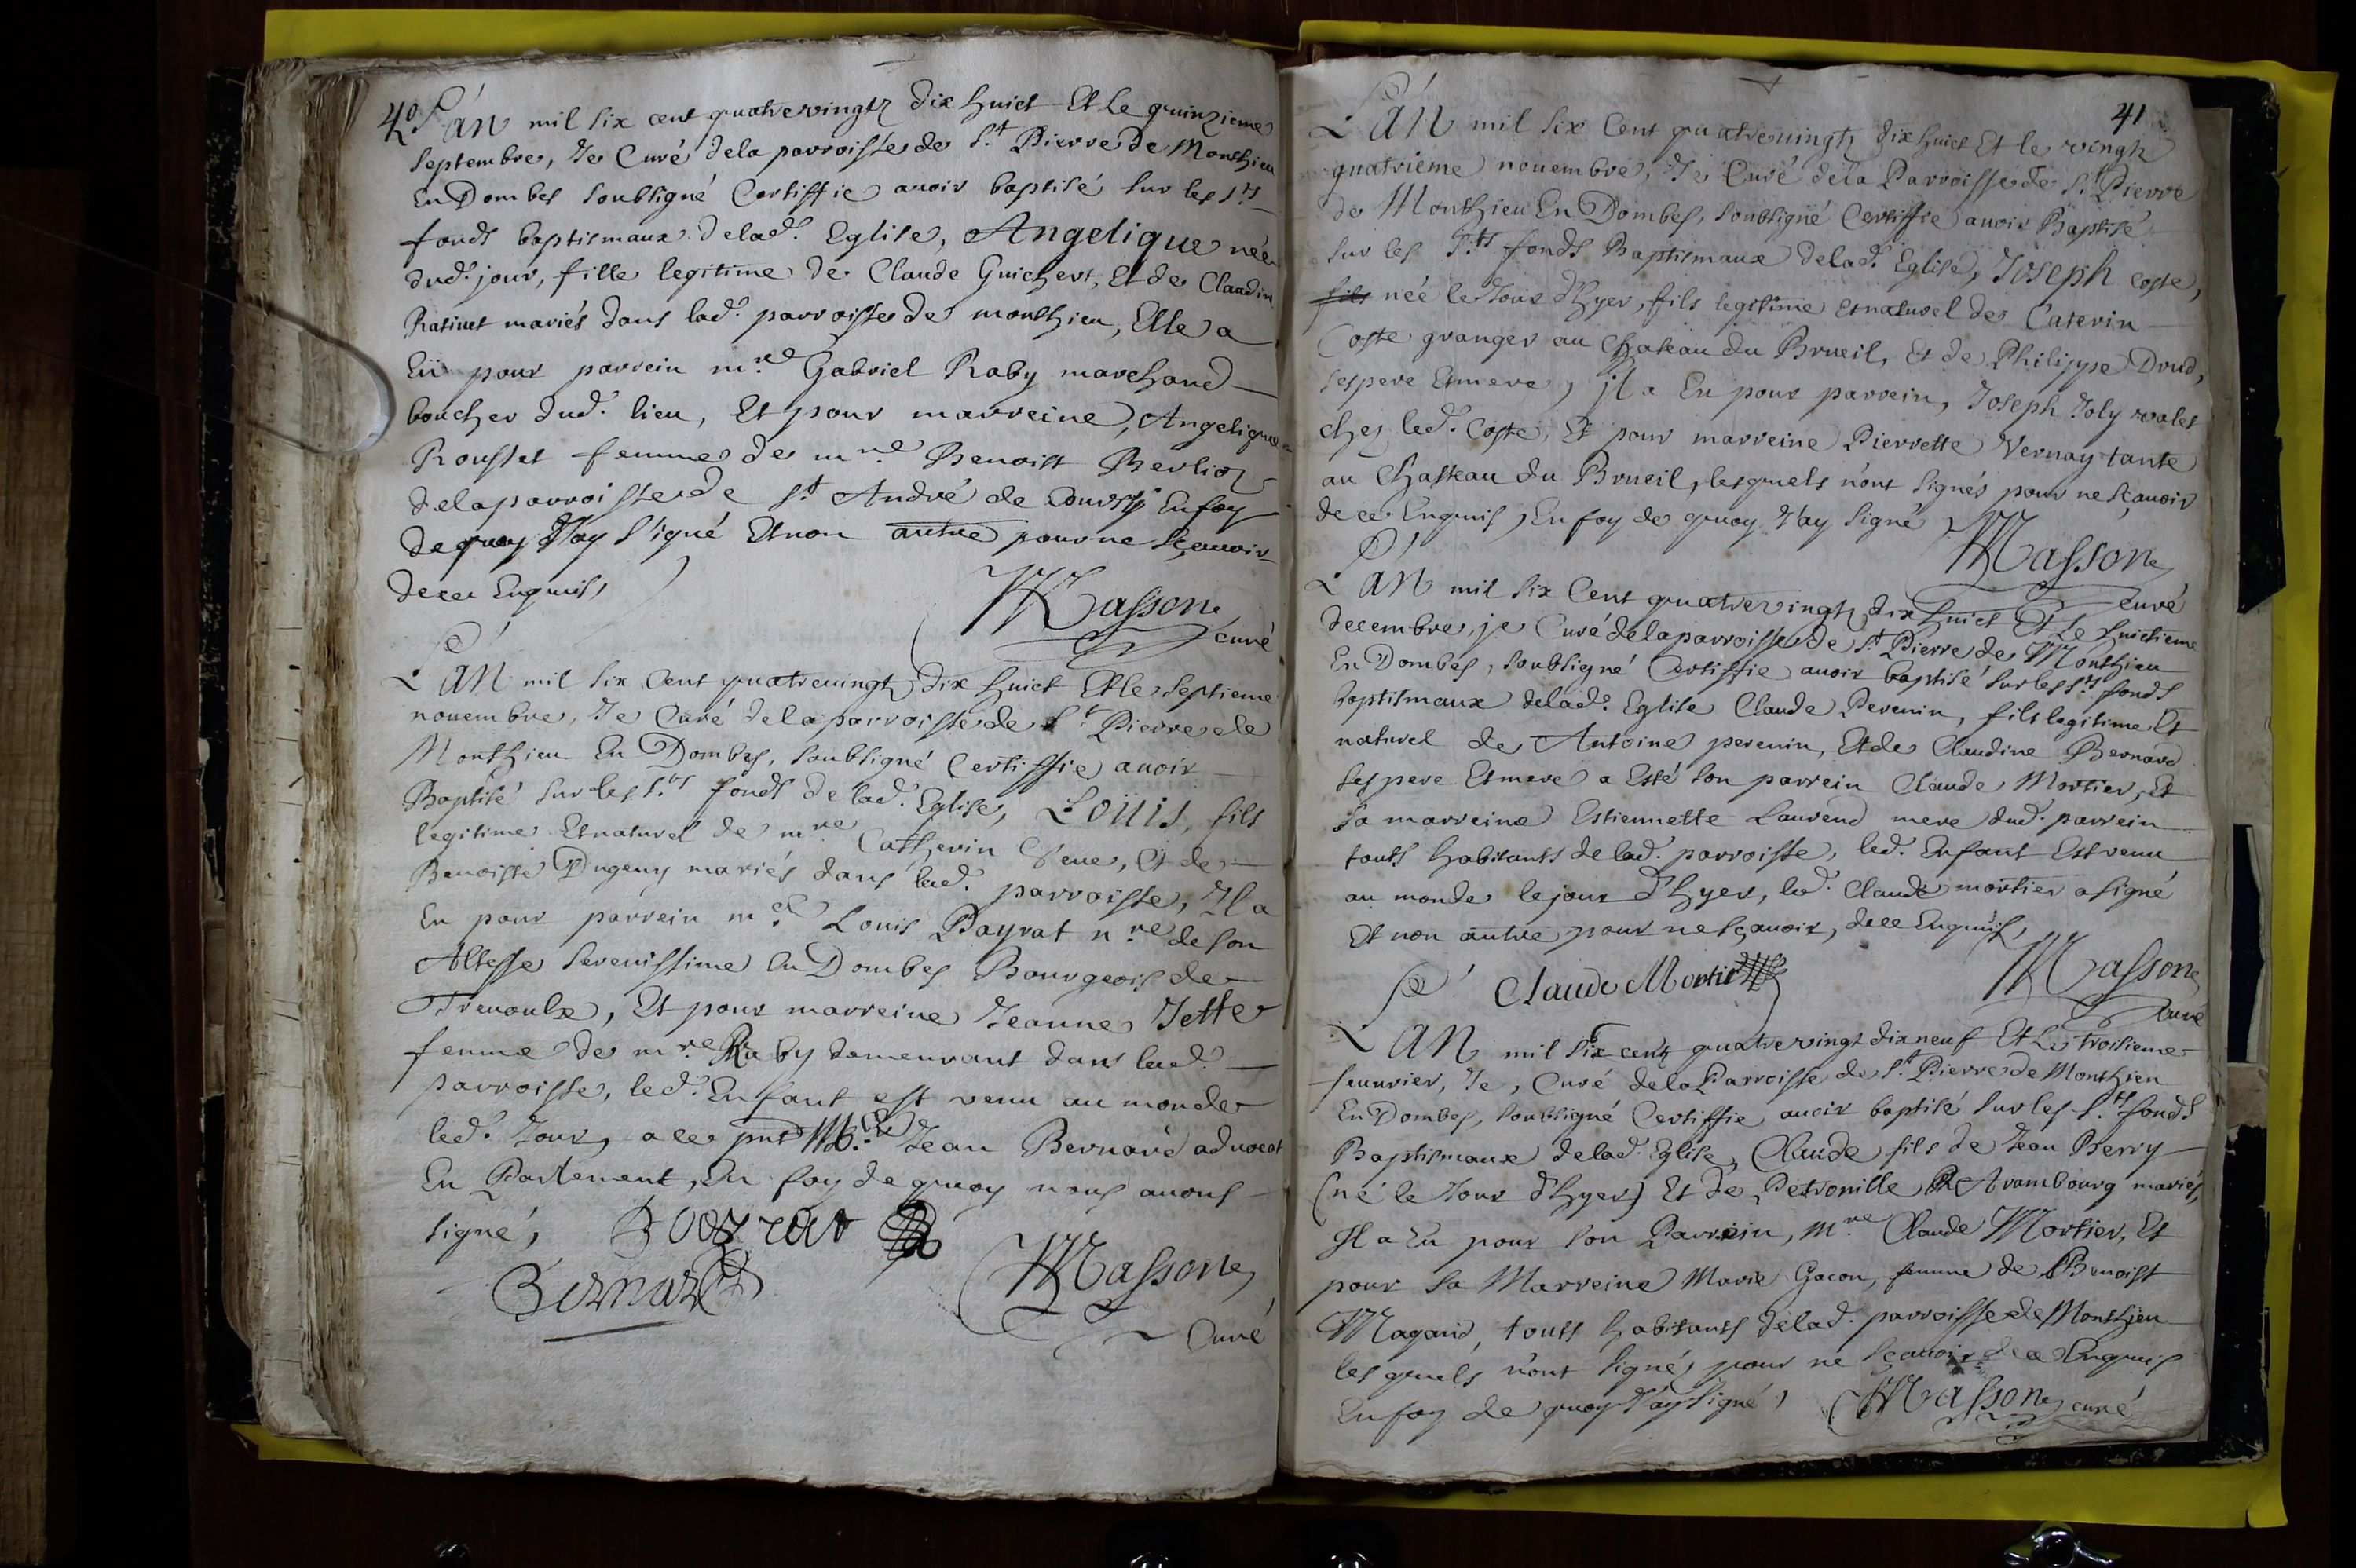 40
L'an mil six cent quatrevingtz dix huict Et Le quinzieme
Septembre, Je Curé dela parroisse de St Pierre de Monthieu
En Dombes soubsigné Certiffie avoir baptisé sur les Sts
fonds baptismaux delad.e Eglise, Angelique née
dud. jour, fille legitime de Claude Guichert, Et de Claudine
Ratinet mariés dans lad.e parroisse de monthieu, Elle a
Eü pour parrein m.re Gabriel Raby marchand
boucher dud. lieu, Et pour marreine, Angelique
Rousset femme de m.re Benoist Berlioz
delaparroisse de St André de Courzy En foy
de quoy J'ay signé Et non autre pour ne sçavoir
de ce Enquis,
Masson
curé
L'an mil six Cent quatrevingtz dix huict Et le septieme
novembre, Je Curé dela parroisse de St Pierre de
Monthieu En Dombes, soubsigné Certiffie avoir
Baptisé sur les Sts fonds de lad. Eglise, Loüis, fils
legitime Et naturel de m.re Catherin Veue, Et de
Benoiste Dugeny mariés dans lad. parroisse, Il a
Eu pour parrein m.e Louis Payrat n.re de son
Altesse Serenissime En Dombes Bourgeois de
Trevoulx, Et pour marreine Jeanne Jette
femme de m.re Raby demeurant dans lad.
parroisse, led. Enfant est venu au monde
led. Jour, a ce pnt Jean Bernard advocat
En Parlement, En foy de quoy nous avons
signé,
Bernard
Masson
Curé
41
L'an mil six Cent quatrevingtz dix huict Et le vingtz
quatrieme novembre, Je Curé dela Parroisse de St Pierre
de Monthieu En Dombes, soubsigné Certiffie avoir Baptisé
sur les Sts fonds Baptismaux delad.e Eglise, Joseph Coste,
fils née le Jour d'hyer, fils legitime Et naturel de Caterin
Coste granger au Chateau du Brueil, Et de Philippe Drud,
ses pere Et mere, jl a Eu pour parrein, Joseph Joly valet
chez led. Coste, Et pour marreine Pierrette Vernay tante
au Chasteau du Brueil, lesquels n'ont signés pour ne sçavoir
de ce Enquis, En foy de quoy J'ay signé
Masson
curé
L'an mil six Cent quatrevingtz dix huict Et Le huictieme
decembre, je Curé delaparroisse de St Pierre de Monthieu
En Dombes, soubsigné Certiffie avoir baptisé sur les Sts fonds
baptismaux delad.e Eglise Claude Perenin, fils legitime Et
naturel de Antoine perenin, Et de Claudine Bernard
ses pere Et mere a Esté son parrein Claude Mortier, Et
sa marreine Estiennette Laurend mere dud. parrein
touts habitants de lad. parroisse, led. Enfant Est venu
au monde le jour d'hyer, led. Claude mortier a signé
Et non autre pour ne sçavoir, de ce Enquis,
Claude Mortier
Masson
curé
L'an mil six centz quatrevingt dix neuf Et Le troisieme
feuvrier, Je, Curé dela Parroisse de St Pierre de Monthieu
En Dombes, soubsigné Certiffie avoir baptisé sur les Sts fonds
Baptismaux delad. Eglise, Claude fils de Jean Berry
(né le Jour d'hyer) Et de Petronille Arambourg mariés,
Il a Eu pour son Parrein, M.re Claude Mortier, Et
pour sa Marreine Marie Gacon, femme de Benoist
Magand, touts habitants delad. parroisse de Monthieu
les quels n'ont signés pour ne sçavoir de ce Enquis
En foy de quoy J'ay signé,
Masson curé